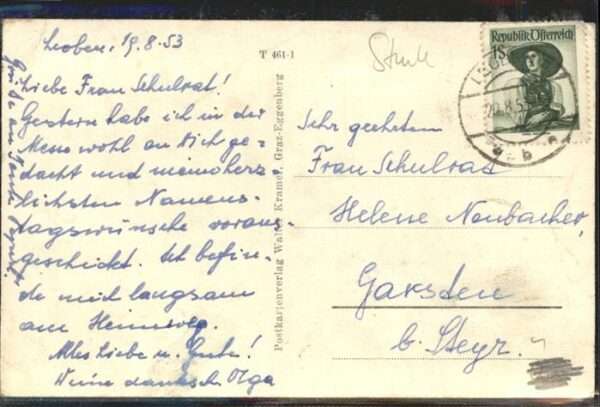 Leoben, 19.8.53
Liebe Frau Schulrat!
Gestern habe ich in der
Messe wohl an Dich ge-
dacht und meine herz-
lichsten Namens-
tagswünsche voraus-
geschickt. Ich befin-
de mich langsam
am Heimweg.
Alles Liebe u. Gute!
Deine dankb. Olga
T 461-1
Postkartenverlag Walter Kramer, Graz-Eggenberg
Republik Österreich
1S
Sehr geehrten
Frau Schulrat
Helene Neubacher,
Garsten
b. Steyr.